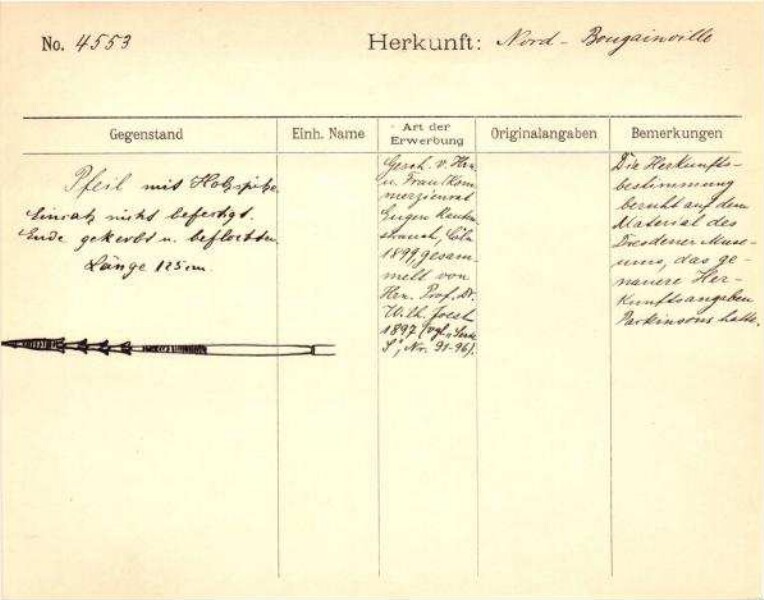 No. 4553
Herkunft: Nord - Bougainville
Gegenstand
Einh. Name
Art der
Erwerbung
Originalangaben
Bemerkungen
Pfeil mit Holzspitze.
Einsatz nicht befestigt.
Ende gekerbt u. beflochten.
Länge 125 cm.
Gesch. v. Hrn.
u. Frau Kom-
merzienrat
Eugen Rauten-
strauch, Cöln
1899, gesam-
melt von
Hrn. Prof. Dr.
Wilh. Joest
1897 (vgl.
S", Nr. 91-96).
Die Herkunfts-
bestimmung
beruht auf dem
Material des
Dresdener Muse-
ums, das ge-
nauere Her-
kunftsangaben
Parkinsons hatte.